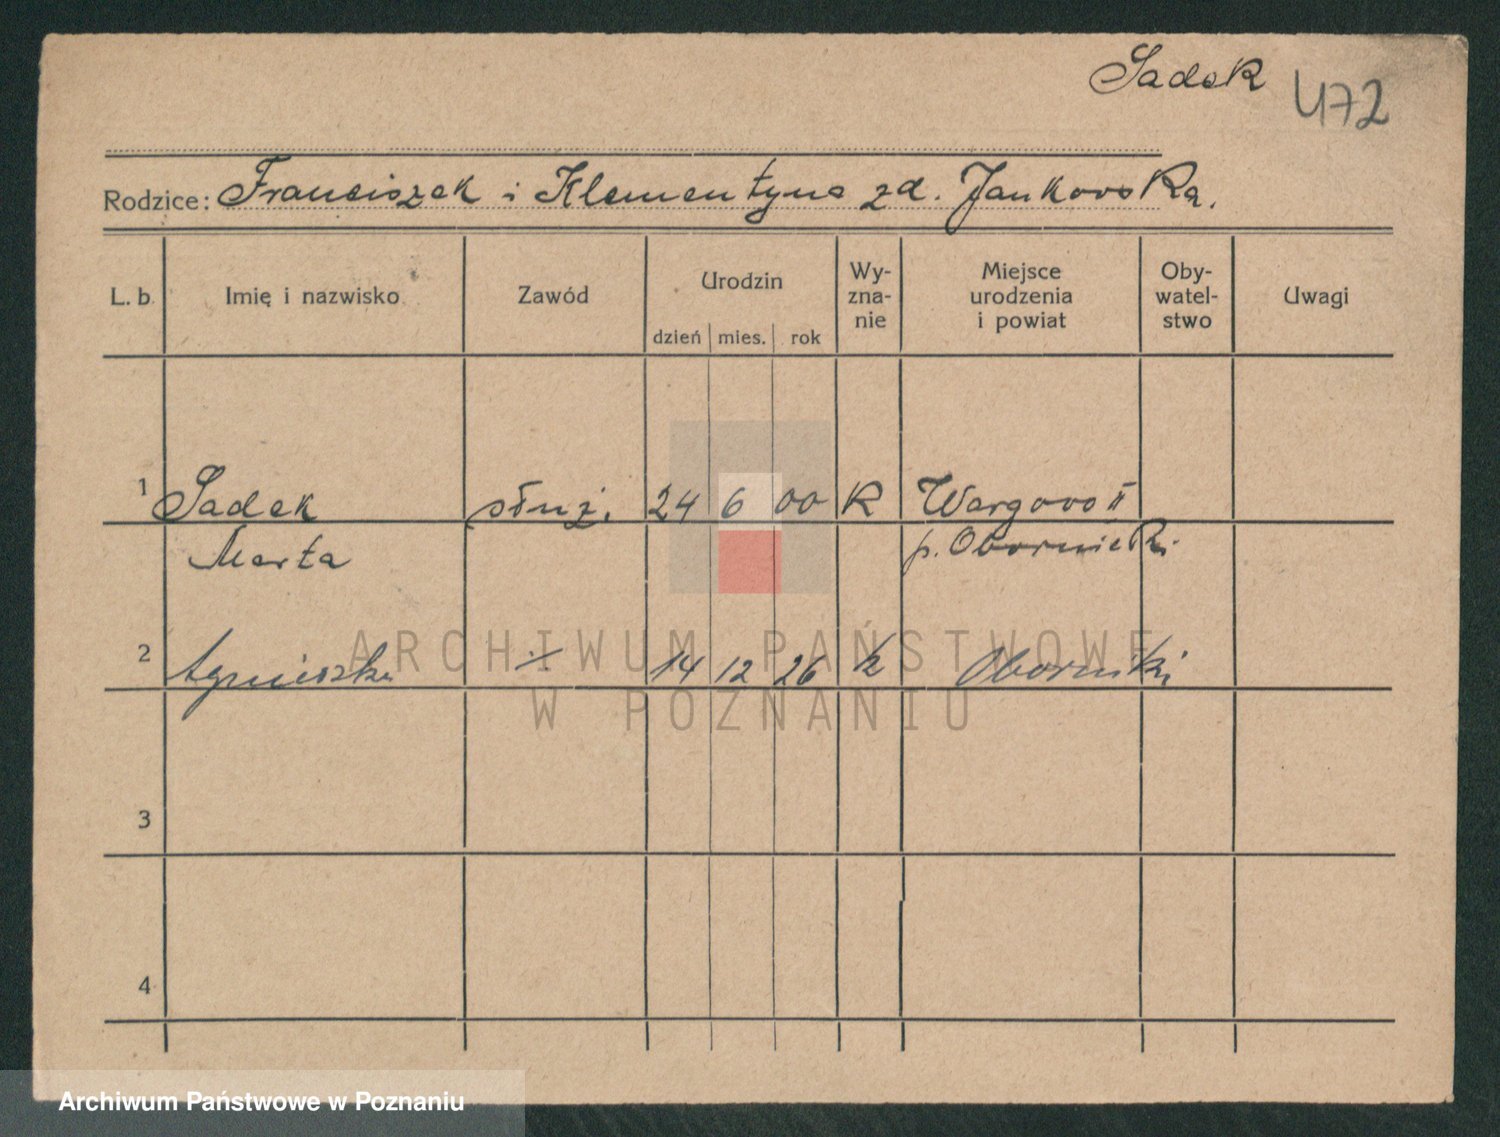 Sadek 472
Rodzice: Franciszek i Klementyna zd. Jankowska.
L. b. Imię i nazwisko Zawód Urodzin Wy-zna-nie Miejsce urodzenia i powiat Oby-watel-stwo Uwagi
dzień mies. rok
1 Sadek służ. 24 6 00 K Wargowo II
Marta p. Obornicki
2 Agnieszka 14 12 26 k Oborniki
3
4
ARCHIWUM PAŃSTWOWE
W POZNANIU
Archiwum Państwowe w Poznaniu